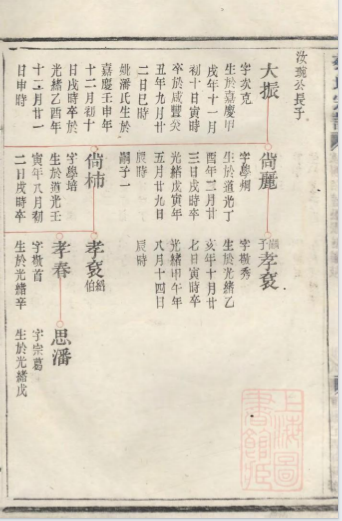 公長子
大振
字次克
生於嘉慶甲
戌年十一月
初十日寅時
卒於咸豐癸
丑年九月廿
二日巳時
妣潘氏生於
嘉慶壬申年
十二月初十
日戌時卒於
光緒乙酉年
十二月廿一
日申時
尙麗
字學炯
生於道光丁
酉年二月廿
三日戌時卒
光緒戊寅年
五月廿九日
辰時
嗣子一
尙柿
字學培
生於道光壬
寅年八月初
二日戌時卒
嗣子
孝袞
字檖秀
生於光緒乙
亥年十月廿
七日寅時卒
光緒甲午年
八月十四日
辰時
孝袞
伯
孝春
字檖首
生於光緒辛
思潘
字宗葛
生於光緒戊
上海圖
書館藏